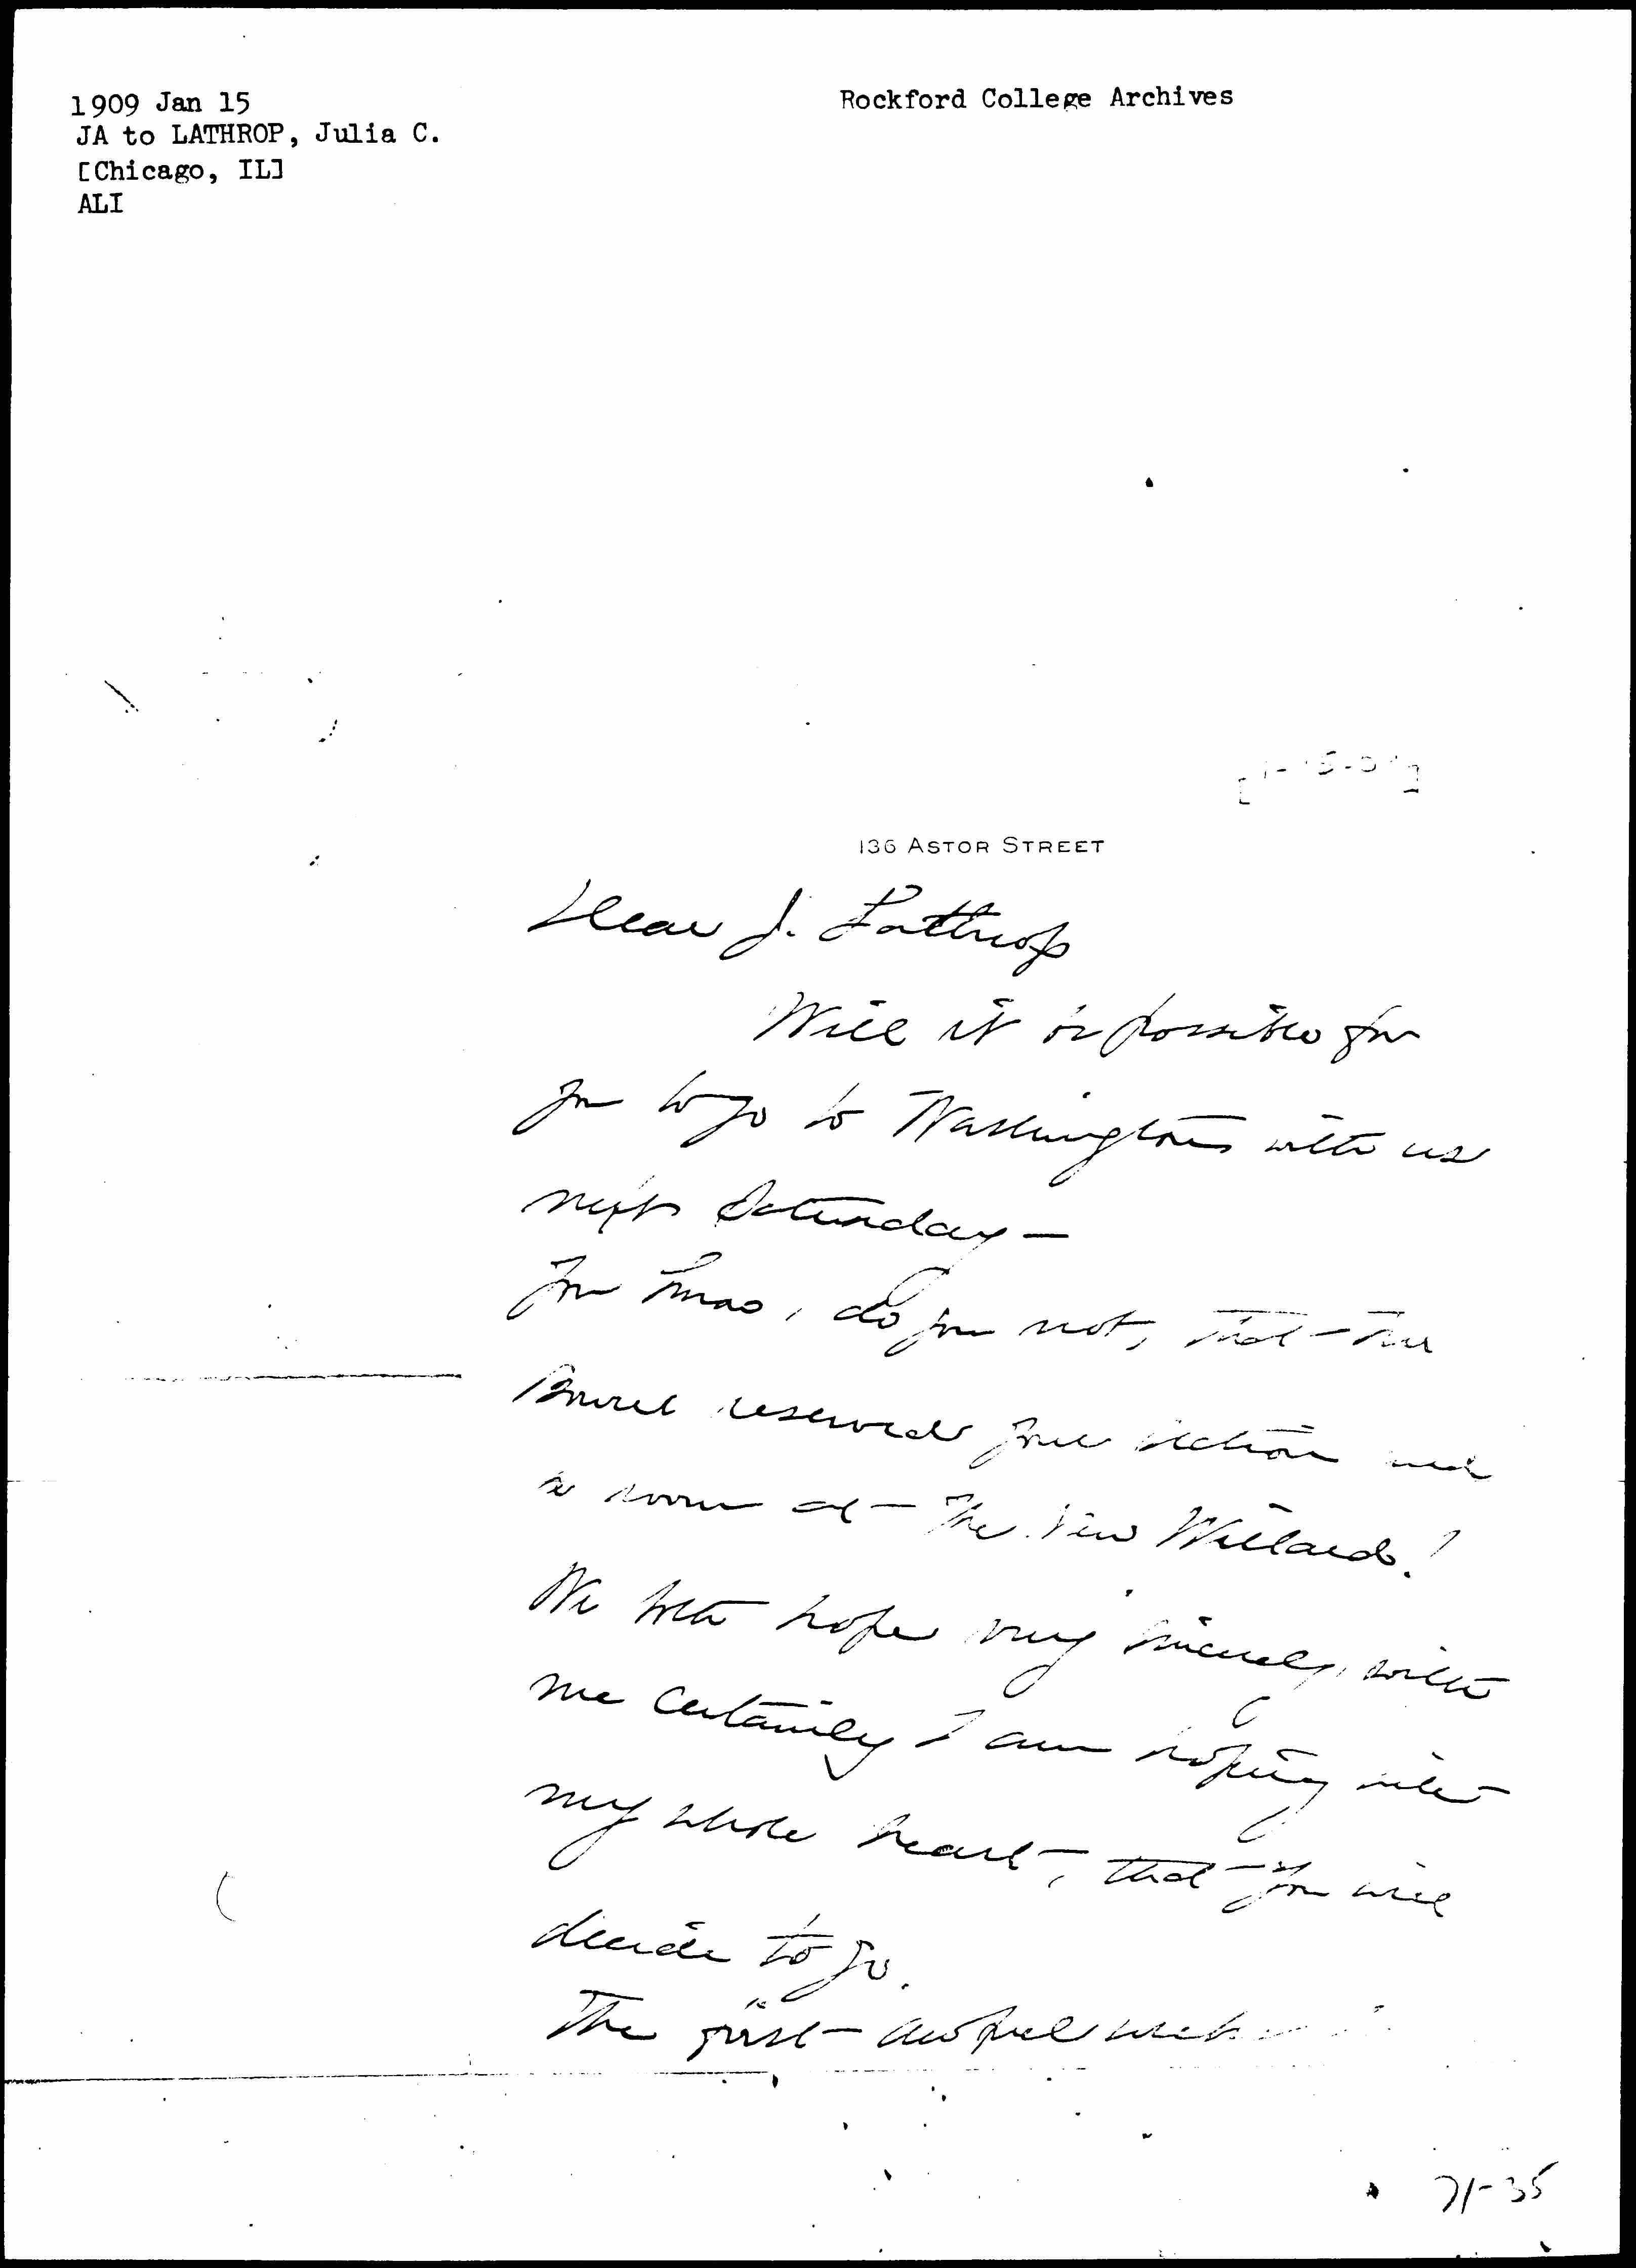 1909 Jan 15
JA to LATHROP, Julia C.
[Chicago, IL]
ALI
Rockford College Archives
[1-15-09]
136 ASTOR STREET
Dear J. Lathrop
Will it be possible for
you to go to Washington with us
next Saturday –
You know, do you not, that the
Bowens reserved your section and
a room at The New Willard!
We both hope very sincerely, with
me certainly I am hoping with
my whole heart, that you will
decide to go.
The first awful week
71-35